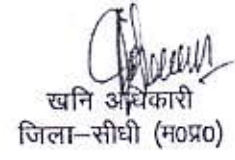 खनि अधिकारी
जिला–सीधी (म०प्र०)